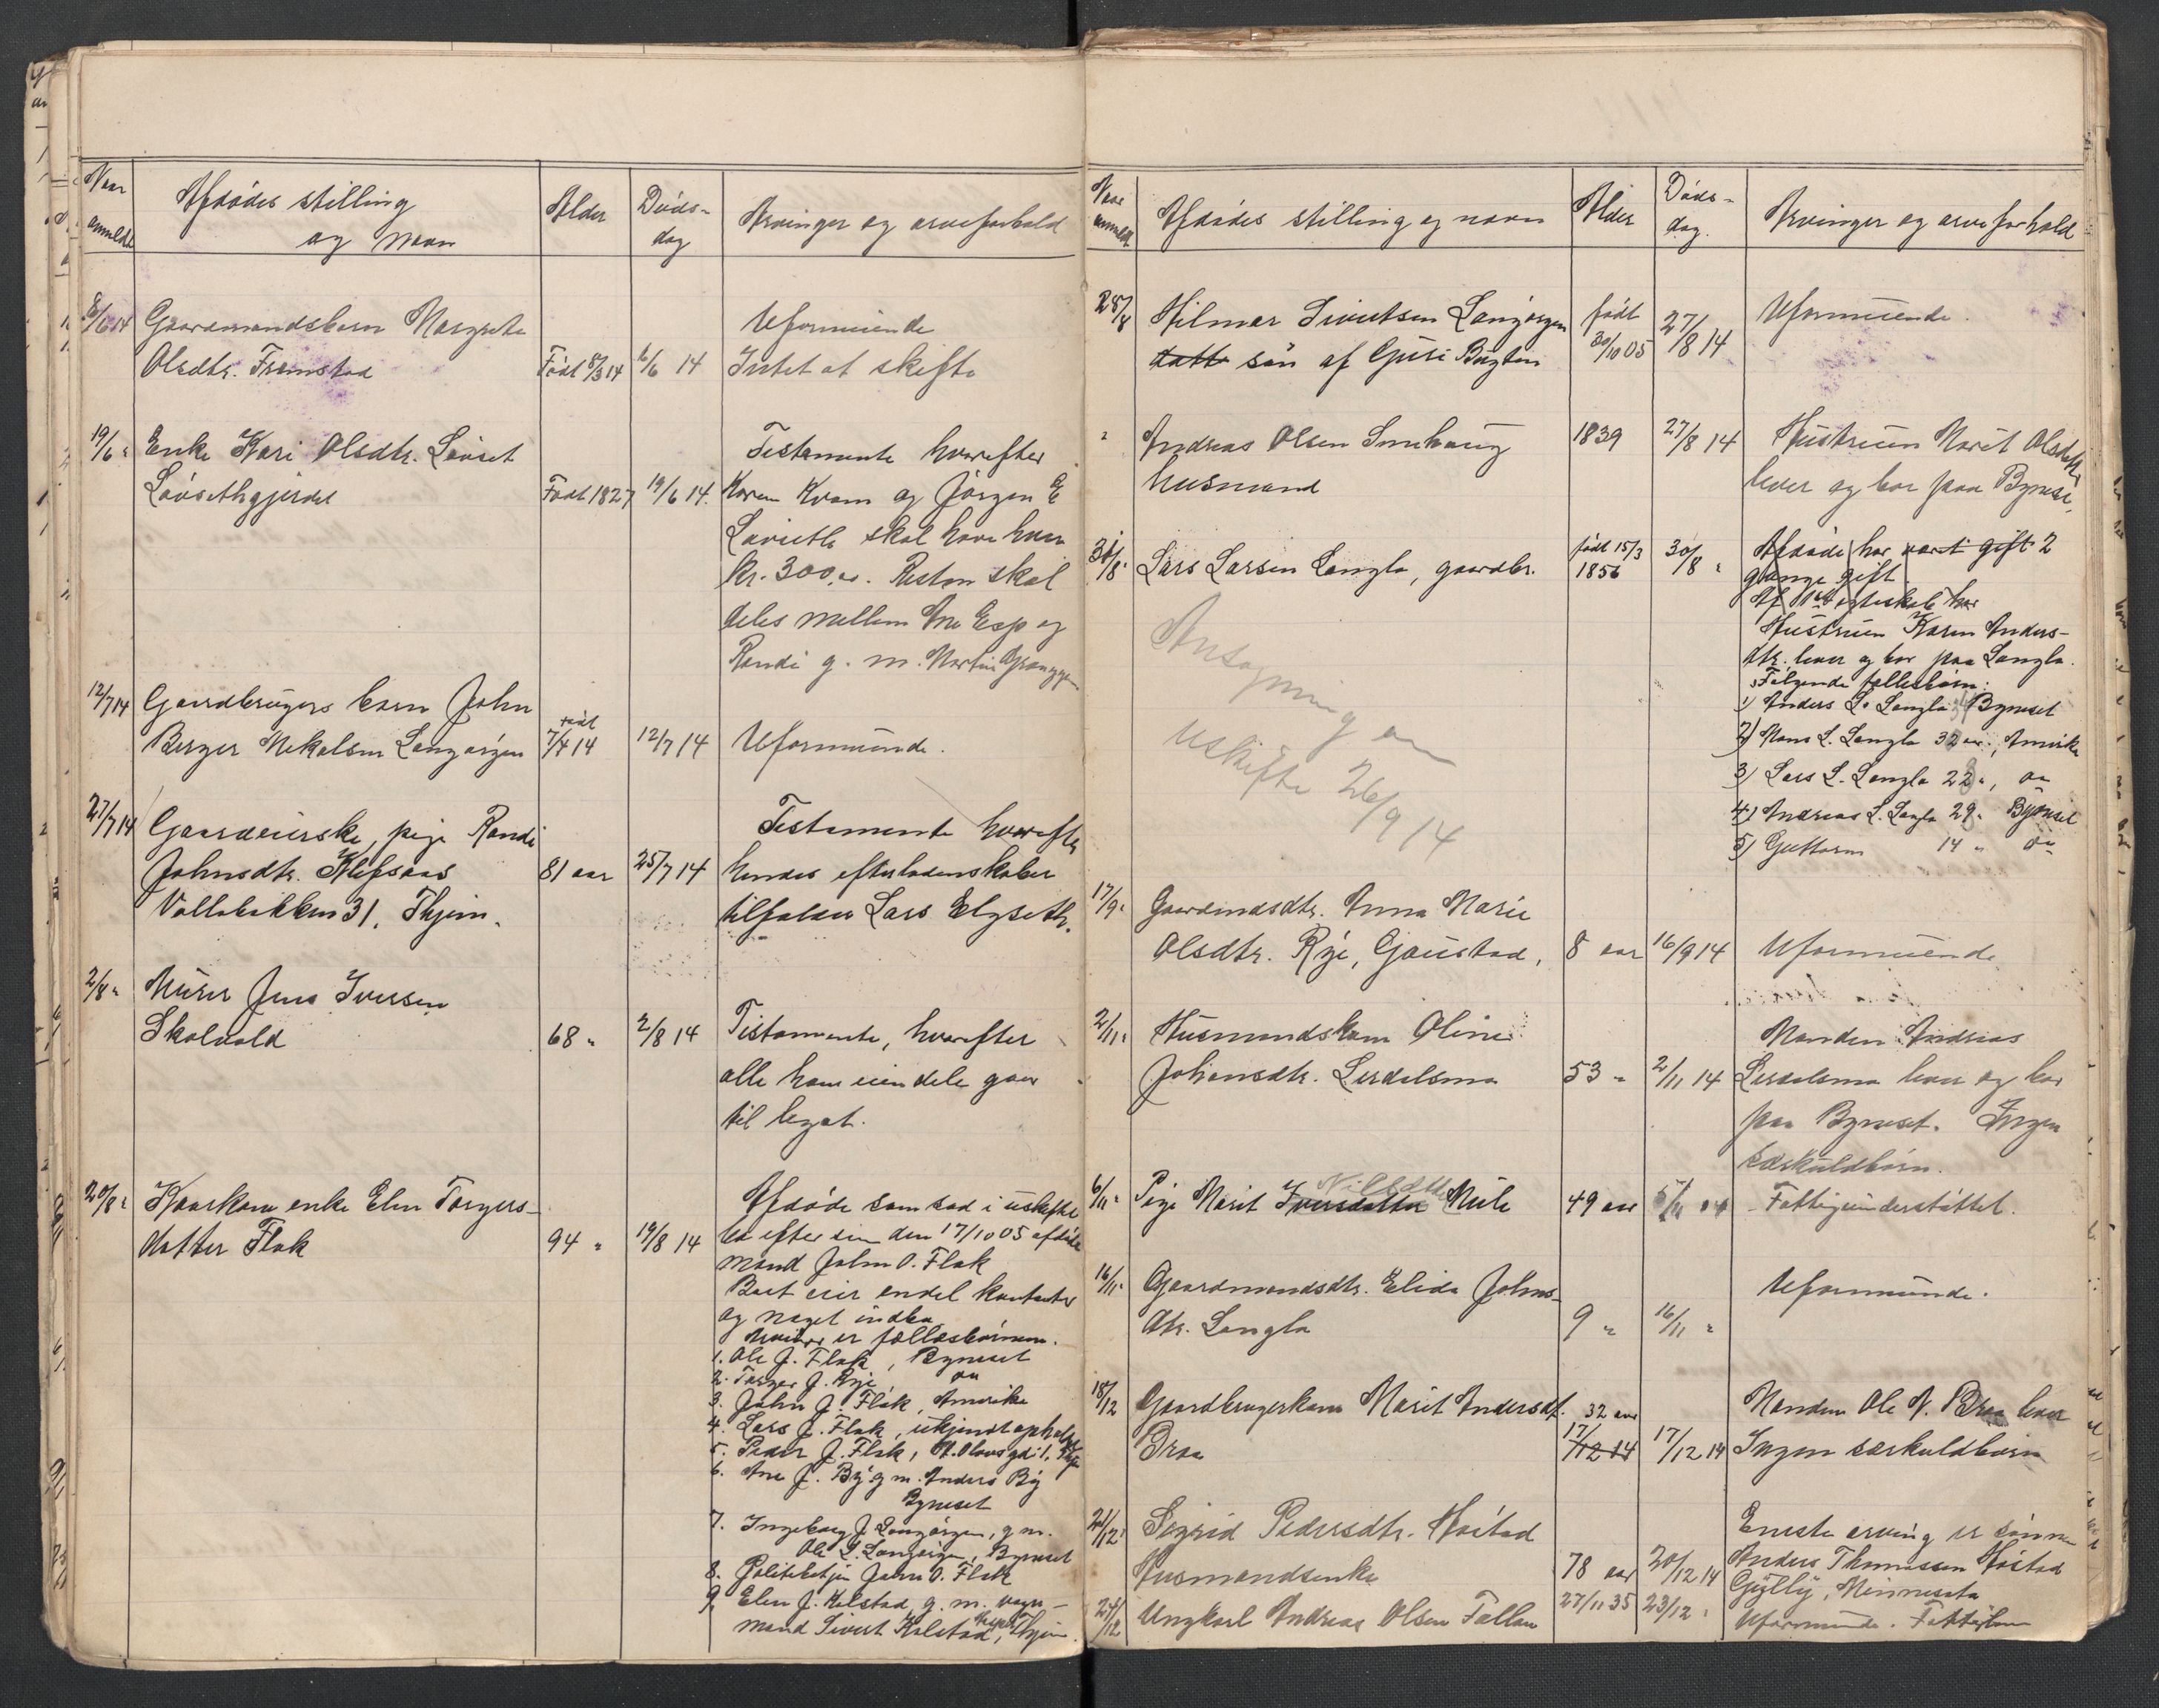 Naar anmeldt
Afdødes stilling
og navn
Alder
Døds-
dag
Arvinger og arveforhold
8/6 14 Gaardmandsbarn Margrete
Olsdtr. Fremstad Født 8/3 14 6/6 14
Uformuende
Intet at skifte
19/6 " Enke Kari Olsdtr. Løvset
Løvsethgjerdet Født 1827 19/6 14.
Testamente hvorefter
Karen Kvam og Jørgen E
Løvseth skal have hver
kr. 300,00. Resten skal
deles mellem Ane Esp og
Randi g. m. Martin
12/7 14 Gaardbrugers barn John
Berger Nekolsen Langørgen født 7/4 14 12/7 14 Uformuende.
27/7 14 Gaardeierske, pige Randi
Johnsdtr. Klefsaas 81 aar 25/7 14
Vollabakken 31, Thjem.
Testamente hvorefter
hendes efterladenskaber
tilfalder Lars Elgseth.
2/8 " Murer Jens Iversen
Skolvold 68 " 2/8 14
Testamente, hvorefter
alle hans eiendele gaar
til legat.
20/8 " Kaarkone enke Elen Torgers-
datter Flak 94 " 19/8 14
Afdøde som sad i uskiftet
bo efter sin den 17/10 05 afdøde
mand John O. Flak
Boet eier endel kontanter
og noget indbo
Arvinger er fællesbørnene.
1. Ole J. Flak, Byneset
2. Torger J. Rye on
3. John J. Flak, Amerika
4. Lars J. Flak, ukjendt ophold
5. Peder J. Flak, St. Olavs gd. 1, Thjem
6. Ane J. By g. m. Anders By
Byneset
7. Ingeborg J. Langørgen, g m.
Ole L. Langørgen, Byneset
8. Politibetjen John O. Flak
9. Elen J. Kolstad, g. m. vogn-
mand Sivert Kolstad, Thjem.
Naar anmeldt
Afdødes stilling og navn
Alder
Døds-
dag.
Arvinger og arveforhold
28/8 Hilmar Sivertsen Langørgen født
30/10 05 27/8 14 Uformuende.
datte søn af Guri Bugten
" Andreas Olsen Smehaug 1839 27/8 14
husmand
Hustruen Marit Olsdtr.
lever og bor paa Byneset,
31/8 " Lars Larsen Langla, gaardbr. født 15/3
1856 30/8 "
Afdøde har vært gift 2
gange gift.
Af 1ste egteskab har
Hustruen Karen Anders-
dtr. lever og bor paa Langla.
Følgende fællesbørn:
1) Anders L. Langla Byneset
2) Hans L. Langla 32 aar, Amerika
3) Lars L. Langla 22 ", on
4) Andreas L. Langla 29 " Byneset
5) Guttorm 14 " on
Ansøgning om
uskifte 26/9 14
17/9 " Gaardmdsdtr. Anna Marie
Olsdtr. Rye, Gaustad, 8 aar 16/9 14 Uformuende
2/11 " Husmandskone Oline
Johansdtr. Lerdalsmo 53 " 2/11 14
Manden Andreas
Lerdalsmo lever og bor
paa Byneset. Ingen
særkuldbørn.
6/11 " Pige Marit Iversdatter Nilsdtr Mule 49 aar 5/11 14 Fattigunderstøttet.
16/11 " Gaardmandsdtr. Elida Johns-
dtr. Langla 9 " 16/11 "
Uformuende.
18/12 Gaardbrugerkone Marit Andersdt. 32 aar
Braa 17/12 14 17/12 14
Manden Ole A. Braa lever
Ingen særkuldbørn
21/12 " Sigrid Pedersdtr. Høstad
Husmandsenke 78 aar 20/12 14
Eneste arving er sønnen
Anders Thomassen Høstad
Gylly, Minnesota
24/12 Ungkarl Andreas Olsen Fallan 27/11 35 23/12 " Uformuende. Fattiglem